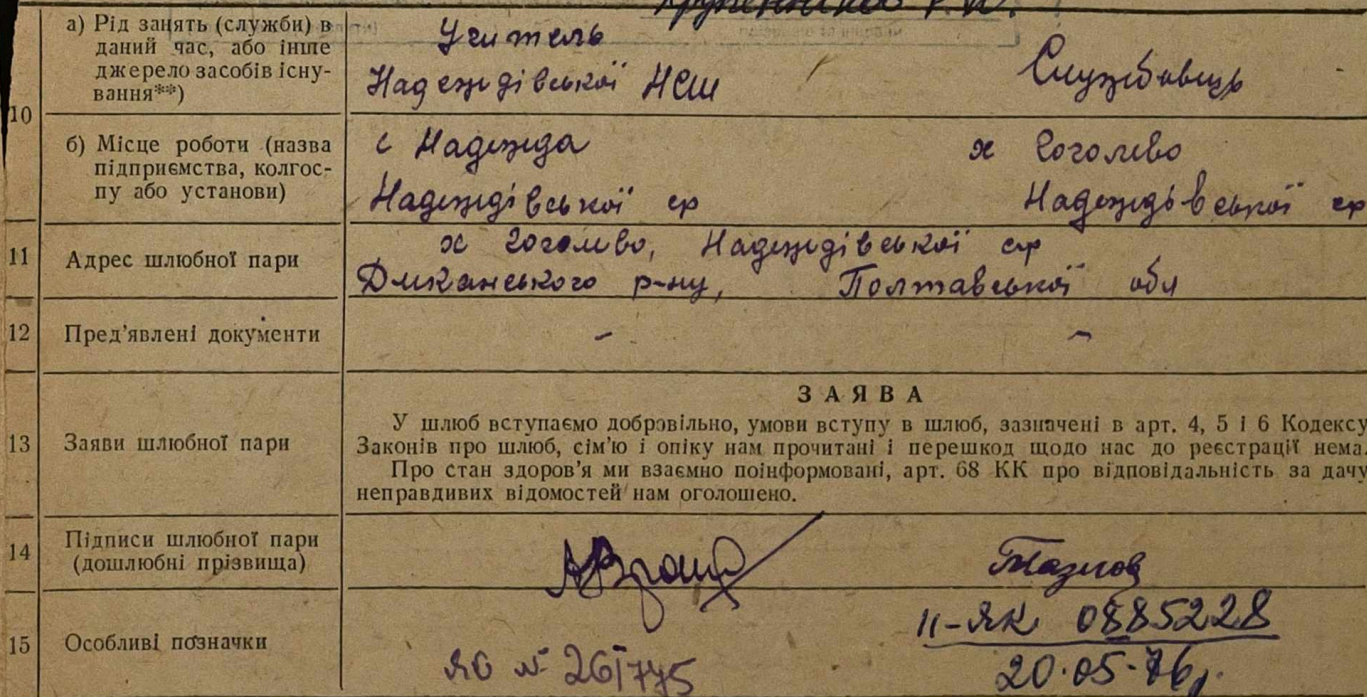 10
а) Рід занять (служби) в
даний час, або інше
джерело засобів існу-
вання**)
Учитель
Надеждівської НСШ
Службовець
б) Місце роботи (назва
підприємства, колгос-
пу або установи)
с Надежда
Надеждівської ср
х Гоголево
Надеждівської ср
11
Адрес шлюбної пари
х Гоголево, Надеждівської ср
Диканського р-ну, Полтавської обл
12
Пред'явлені документи
-
-
13
Заяви шлюбної пари
ЗАЯВА
У шлюб вступаємо добровільно, умови вступу в шлюб, зазначені в арт. 4, 5 і 6 Кодексу
Законів про шлюб, сім'ю і опіку нам прочитані і перешкод щодо нас до реєстрації нема.
Про стан здоров'я ми взаємно поінформовані, арт. 68 КК про відповідальність за дачу
неправдивих відомостей нам оголошено.
14
Підписи шлюбної пари
(дошлюбні прізвища)
15
Особливі позначки
ЯС № 261775
II-ЯК 0885228
20.05.76р.